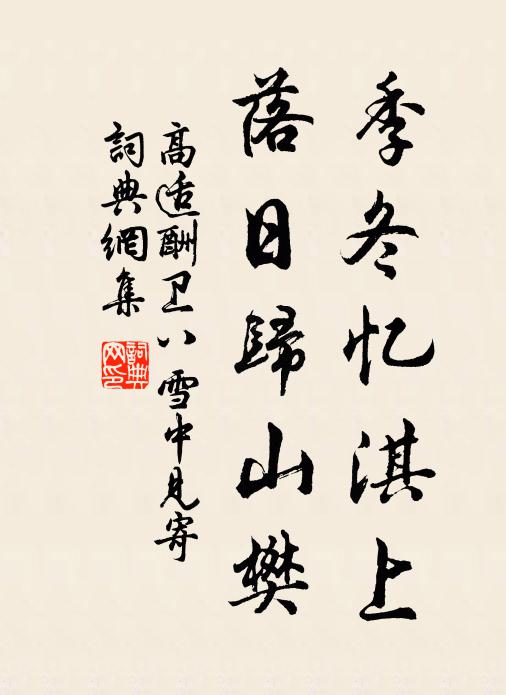 季冬忆淇上
落日歸山樊
高适酬卫八雪中見寄
詞典網集
詞典网印